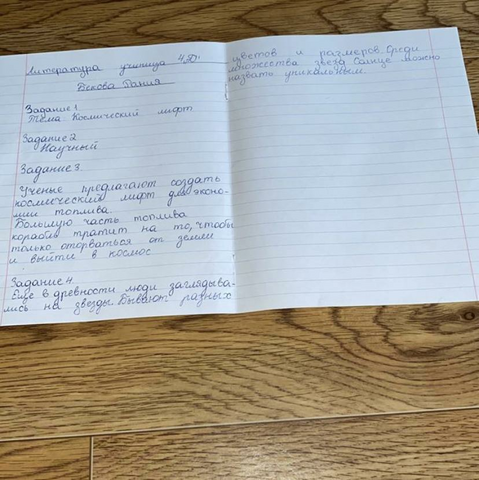 Литература ученица 4"D"
Бекова Рания
Задание 1
Тема: Космический лифт
Задание 2
Научный
Задание 3
Ученые предлагают создать
космический лифт для эконо-
мии топлива.
Большую часть топлива
корабли тратит на то, чтобы
только оторваться от земли
и выйти в космос
Задание 4
Еще в древности люди заглядыва-
лись на звезды. Бывают разных
цветов и размеров. Среди
множества звезд Солнце можно
назвать уникальным